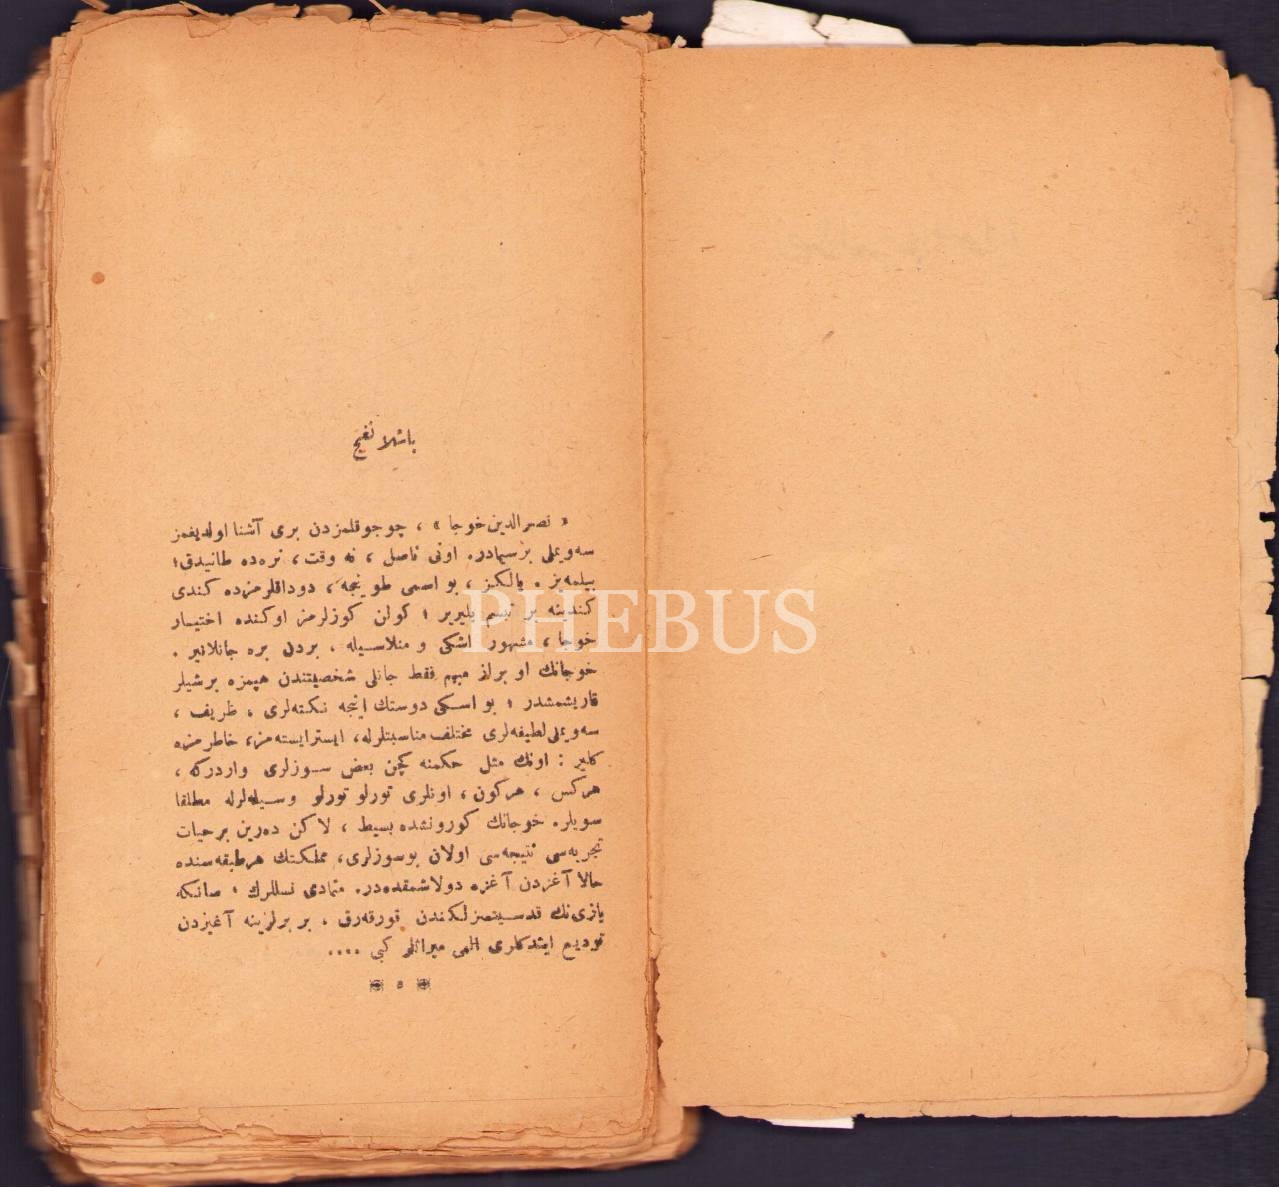 باشلانغیج
« نصرالدین خوجا » ، چوجوقلمزدن بری آشنا اولدیغمز
سه‌ویملی بر سیمادر. اونی ناصل ، نه وقت ، نره‌ده طانیدق؛
بیلمه‌یز . یالکز ، بو اسمی طوینجه ، دوداقلرمزده کندی
کندینه بر تبسم بلیریر ؛ کولن کوزلرمز اوکنده اختیار
خوجا ، مشهور اشکی و منلاسیله ، بردن بره جانلانیر .
خوجانك او براز مبهم فقط جانلی شخصیتندن هپمزه برشیلر
قاریشمشدر ؛ بو اسکی دوستك اینجه نکته‌لری ، ظریف ،
سه‌ویملی لطیفه‌لری مختلف مناسبتلرله، ایستر ایسته‌مز، خاطرمزه
کلیر : اونك مثل حکمنه کچن بعض سوزلری واردرکه ،
هرکس ، هرکون ، اونلری تورلو تورلو وسیله‌لرله مطلقا
سویلر. خوجانك کورونشده بسیط ، لاکن ده‌رین برحیات
تجربه‌سی نتیجه‌سی اولان بوسوزلری، مملکتك هرطبقه‌سنده
حالا آغزدن آغزه دولاشمقده‌در. متمادی نسللرك ؛ صانکه
یازی‌نك قدسیتسزلکندن قورقه‌رق ، بر برلرینه آغیزدن
تودیع ایتدکلری الهی میراثلر کبی ....
٥
PHEBUS